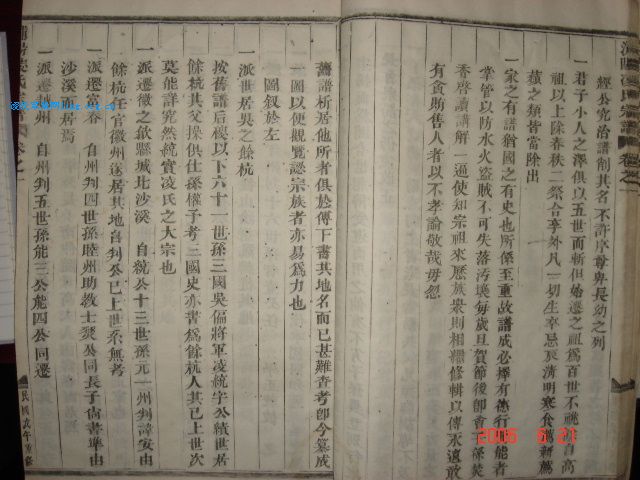 經公究治譜削其名不許序尊卑長幼之列
一君子小人之澤俱以五世而斬但始遷之祖爲百世不祧自高
祖以上除春秋二祭合享外凡一切生卒忌辰清明寒食薦新薦
之類皆當除出
一家之有譜猶國之有史也所係至重故譜成必擇有德行能者
掌管以防水火盜賊不可失落污壞每歲旦賀節後卽會子孫焚
香啓讀講解一遍使知宗祖來歷族衆則相繼修輯以傳永遠敢
有貪賄售人者以不孝論敬哉毋忽
舊譜析居他所者俱於傳下書其地名而已甚難查考卽今纂成
一圖以便觀覽認宗族者亦易爲力也
圖叙於左
一派世居吳之餘杭
按舊譜后稷以下六十一世孫三國吳偏將軍凌統字公績世居
餘杭其父操俱仕孫權子考三國史亦書爲餘杭人其已上世次
莫能詳究然統實凌氏之大宗也
一派遷徽之歙縣城北沙溪 自統公十三世孫元一州判諱安由
餘杭任官徽州遂居其地自判公已上世系無考
一派遷宣春 自州判四世孫睦州助教士 公同長子尚書 由
沙溪而居焉
一派遷越州 自州判五世孫能三公能四公同遷
民國戊午重修
2006 6 21